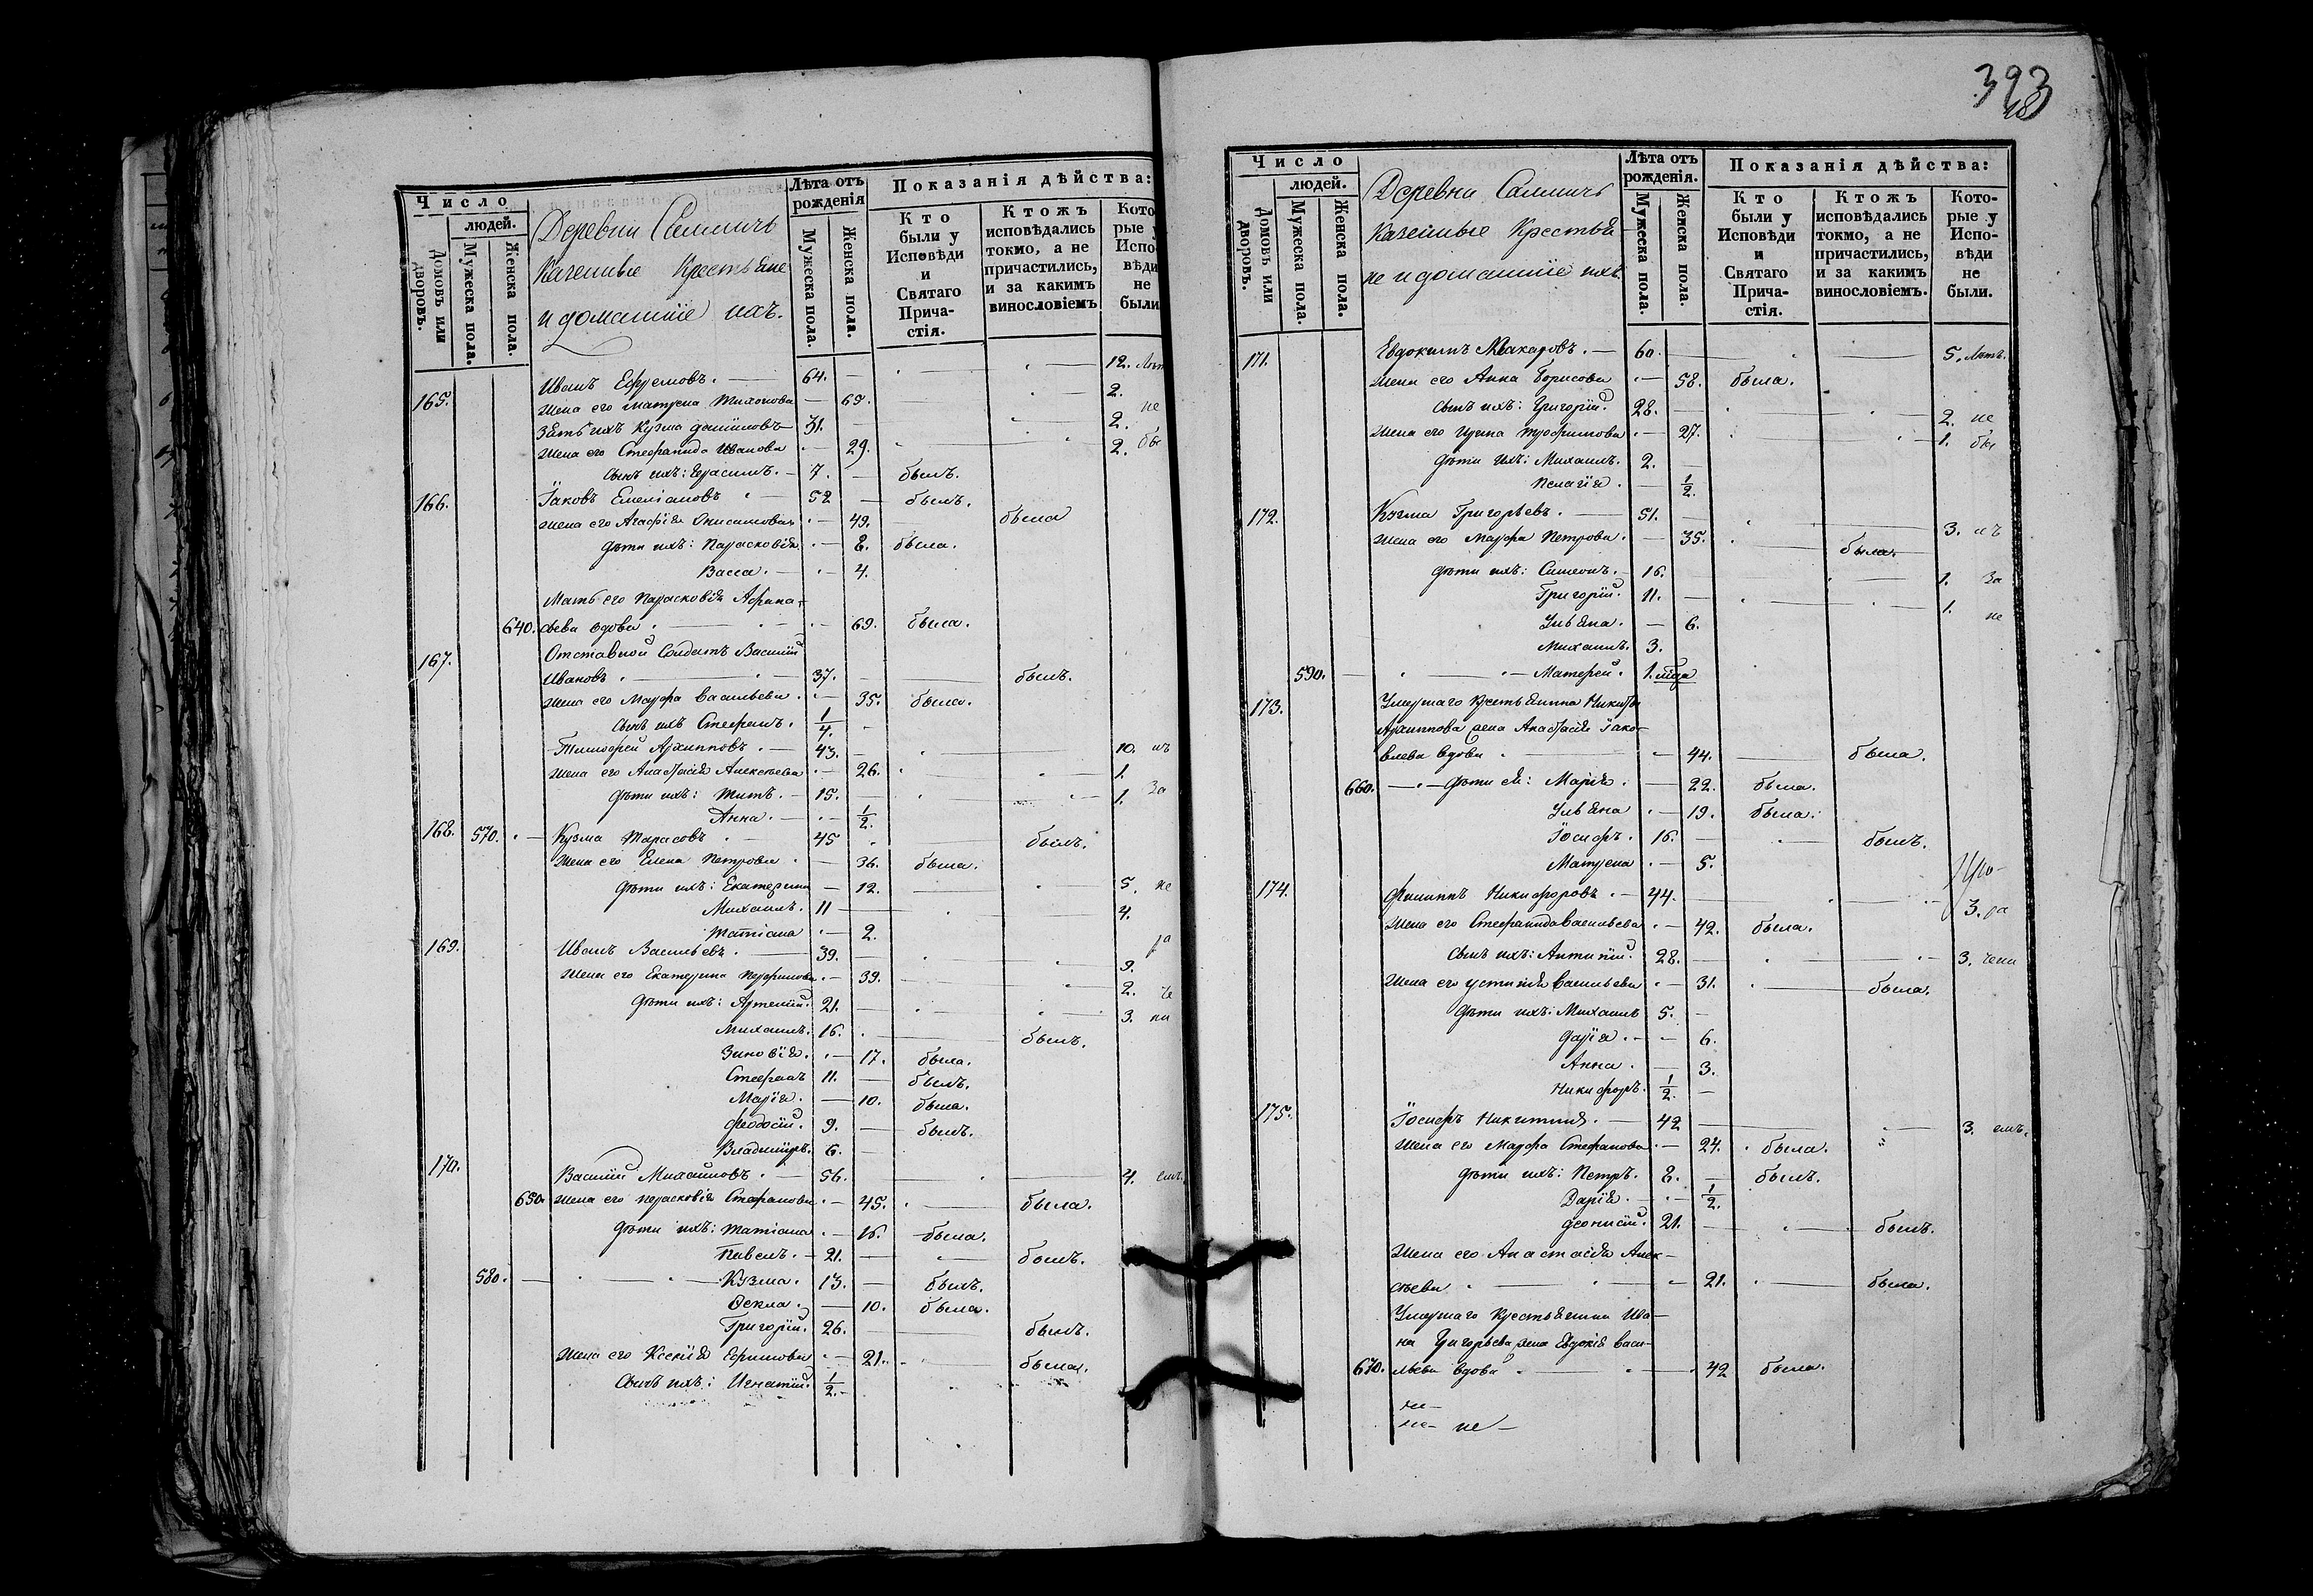 Число
людей.
Домовъ или дворовъ.
Мужеска пола.
Женска пола.
Деревни
Казенные Крестьяне
и домашніе ихъ.
Лѣта отъ рожденія
Мужеска пола.
Женска пола.
Показанія дѣйства:
Кто были у Исповѣди и Святаго Причастія.
Ктожъ исповѣдались токмо, а не причастились, и за какимъ винословіемъ
Кото
рые у
Испо
вѣди
не
были
165. Иванъ Ефремовъ. — 64. — 12.
Жена его Матрена Тихонова — 69. — 2. не
Зять ихъ Кузма Даниловъ — 31. — 2.
Жена его Стефанида Иванова — 29. — 2. бы
Сынъ ихъ: Герасимъ. — 7. — былъ.
166. Іаковъ Емеліановъ — 52 — былъ.
Жена его Агафія Онисимова — 49. была
Дѣти ихъ: Парасковія — 8. была.
Васса. — 4.
Мать его Парасковія Афана-
640. сьева вдова — 69. была.
167. Отставной Солдатъ Василій
Ивановъ — 37. былъ.
Жена его Марфа Васильева — 35. была.
Сынъ ихъ Стефанъ. 1/4. -
Тимофей Архиповъ. — 43. — 10. мъ
Жена его Анастасія Алексѣева — 26. — 1.
Дѣти ихъ: Титъ. — 15. — 1. За
Анна. — 1/2.
168. 570. Кузма Тарасовъ — 45 былъ.
Жена его Елена Петрова — 36. была.
Дѣти ихъ: Екатерина — 12. — 5. не
Михаилъ. 11 — 4.
Татіана — 2.
169. Иванъ Васильевъ. — 39. — 9. ра
Жена его Екатерина — 39. — 2. че
Дѣти ихъ: Артемій. 21. — 3. ни
Михаилъ. 16. былъ.
Зиновія. — 17. была.
Стефанъ 11. — былъ.
Марія. — 10. была.
Феодосій. 9. — былъ.
Владиміръ. 6. —
170. Василій Михайловъ. — 56. — 4. емъ.
650. Жена его Парасковія Стефанова — 45. — была.
Дѣти ихъ: Татіана — 16. была.
Павелъ. — 21. — былъ.
580. — Кузма. 13. — былъ.
Фекла. — 10. была.
Григорій. 26. — былъ.
Жена его Ксенія Ефимова — 21. — была.
Сынъ ихъ: Игнатій. 1/2. -
393
48
Число
людей.
Домовъ или дворовъ.
Мужеска пола.
Женска пола.
Деревни
Казенные Крестья-
не и домашніе ихъ.
Лѣта отъ рожденія.
Мужеска пола.
Женска пола.
Показанія дѣйства:
Кто были у Исповѣди и Святаго Причастія.
Ктожъ исповѣдались токмо, а не причастились, и за какимъ винословіемъ.
Которые у Исповѣди не были.
171. Евдокимъ Макаровъ. — 60. — 5. Лѣтъ.
Жена его Анна Борисова — 58. была.
Сынъ ихъ: Григорій. 28. — 2. не
Жена его Ирина Трофимова — 27. — 1. бы
Дѣти ихъ: Михаилъ. 2. —
Пелагія. — 1/2.
172. Кузма Григорьевъ. — 51. — 3. лъ
Жена его Марфа Петрова. — 35. — была.
Дѣти ихъ: Симеонъ. 16. — 1. За
Григорій. 11. — 1. не
Ульяна. — 6.
Михаилъ. 3.
590. — Матфей. 1. года
173. Умершаго Крестьянина Никиты
Архипова жена Анастасія Іако-
влева вдова — 44. — была.
660. — Дѣти ея: Марія. — 22. была.
Ульяна — 19. была.
Іосифъ. 16. — былъ.
Матрена — 5.
174. Филиппъ Никифоровъ. — 44. — 3. ра
Жена его Стефанида Васильева — 42. была.
Сынъ ихъ: Антипій. 28. — 3. чени
Жена его Устинія Васильева — 31. — была.
Дѣти ихъ: Михаилъ 5. —
Дарія. — 6.
Анна. — 3.
Никифоръ. 1/2. —
175. Іосифъ Никитинъ. — 42 — 3. емъ.
Жена его Марфа Стефанова — 24. была.
Дѣти ихъ: Петръ. 8. — былъ.
Дарія. — 1/2.
Деонисій. 21. — былъ.
Жена его Анастасія Алек-
сѣева — 21. — была.
Умершаго Крестьянина Ива-
на Григорьева жена Евдокія Васи-
670. льева вдова — 42 была.
не —